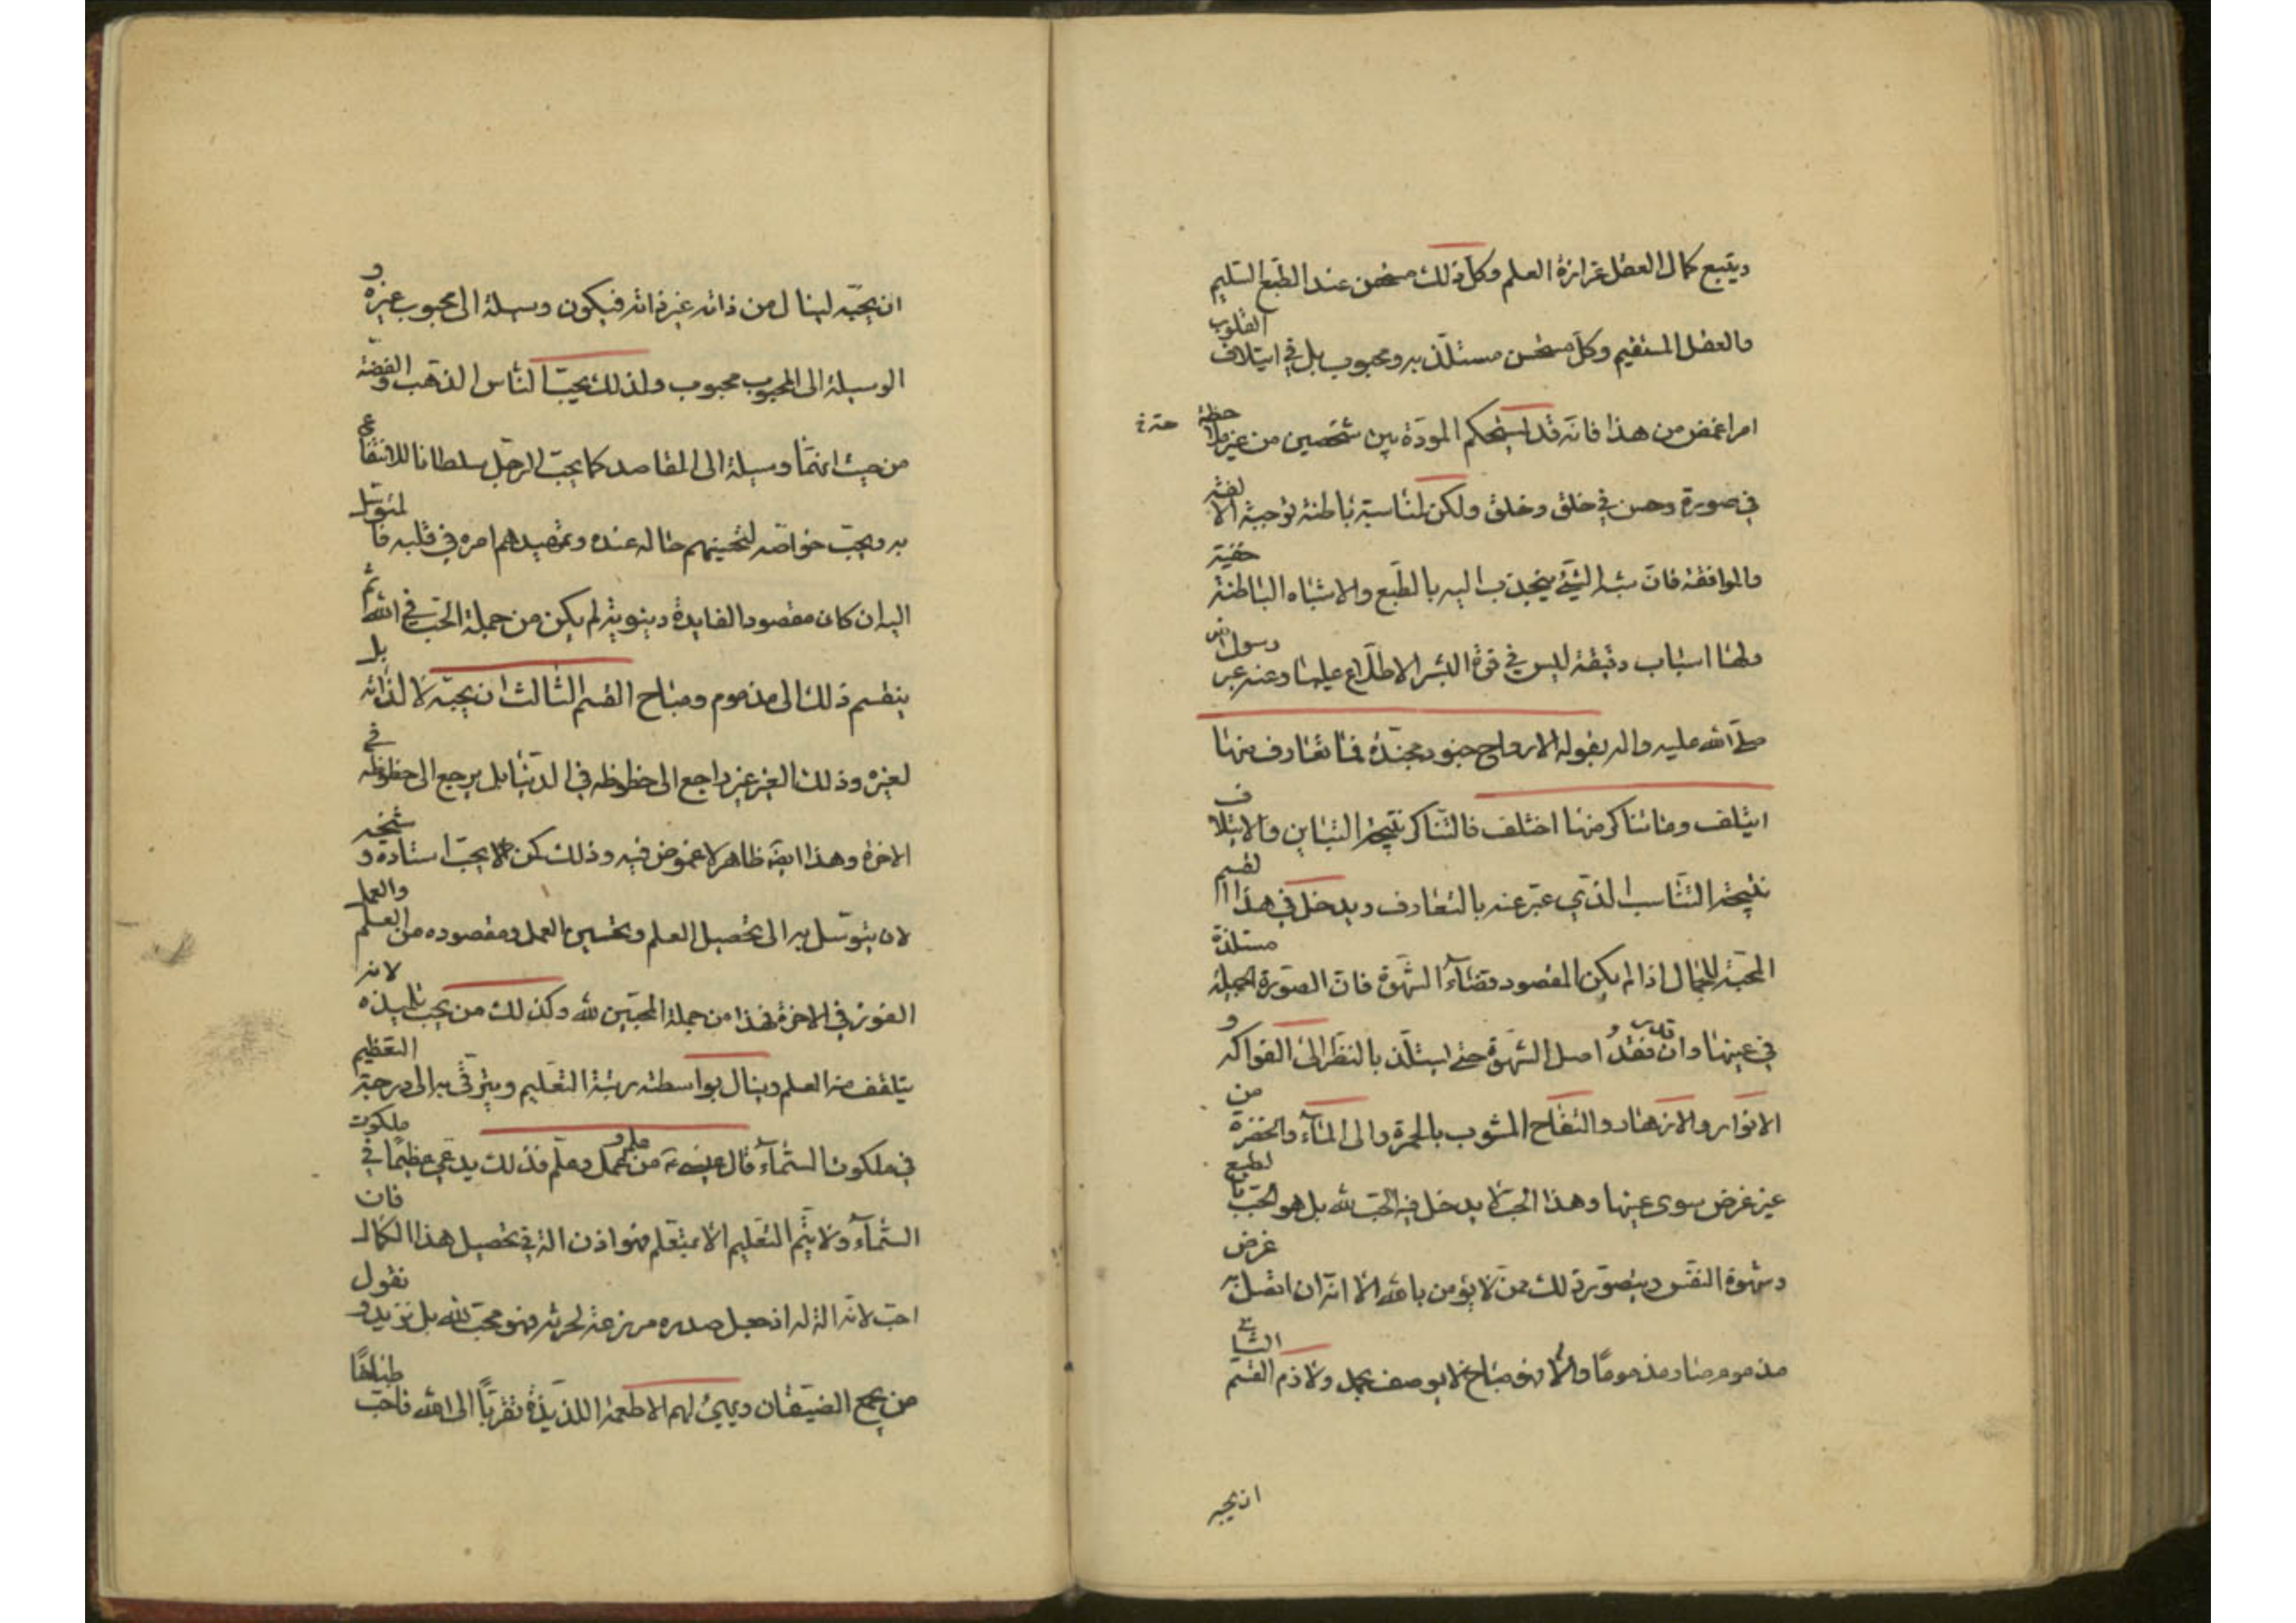 ويتبع كمال العقل غزازة العلم وكل ذلك مستحسن عند الطبع السليم
والعقل المستقيم وكل مستحسن مستلذ به ومحبوب بل في ايتلاف القلوب
امر اغمض من هذا فانه قد استحكم المودة بين شخصين من غير ملاحظة
في صورة وحسن في خلق وخلق ولكن لمناسبة باطنة توجبه الالفة
والموافقة فان شبه الشيء ينجذب اليه بالطبع والاشباه الباطنة خفية
ولها اسباب دقيقة ليس في قوة البشر الاطلاع عليها وعنه عبر رسول الله
صلى الله عليه واله بقوله الارواح جنود مجندة فما تعارف منها
ايتلف وما تناكر منها اختلف فالتناكر نتيجة التباين والايتلاف
نتيجة التناسب الذي عبر عنه بالتعارف ويدخل في هذا القسم
المحبة للجمال اذا لم يكن المقصود قضاء الشهوة فان الصورة الجميلة مستلذة
في عينها وان قدر فقد اصل الشهوة حتى يستلذ بالنظر الى الفواكه و
الانوار والازهار والتفاح المشوب بالحمرة والى الماء والخضرة من
غير غرض سوى عينها وهذا الحب لا يدخل فيه الحب لله بل هو الحب بالطبع
وشهوة النفس ويتصور ذلك ممن لا يؤمن بالله الا انه ان اتصل به غرض
مذموم صار مذموما والا فهو مباح لا يوصف بحمد ولا ذم القسم الثاني
ان يحبه
ان يحبه لينال من ذاته غير ذاته فيكون وسيلة الى محبوب غيره و
الوسيلة الى المحبوب محبوب ولذلك يحب الناس الذهب والفضة
من حيث انهما وسيلة الى المقاصد كما يحب الرجل سلطانا للانتفاع
به ويحب خواصه لتحسينهم حاله عنده وتمهيدهم امره في قلبه فالمتوسل
اليه ان كان مقصود الفايدة دنيوية لم يكن من جملة الحب في الله ثم
ينقسم ذلك الى مذموم ومباح القسم الثالث ان يحبه لا لذاته بل
لغيره وذلك الغير غير راجع الى حظوظه في الدنيا بل يرجع الى حظوظه في
الاخرة وهذا ايضا ظاهر لا غموض فيه وذلك كمن يحب استاده و شيخه
لان يتوسل به الى تحصيل العلم وتحسين العمل ومقصوده من العلم والعمل
الفوز في الاخرة فهذا من جملة المحبين لله وكذلك من يحب تلميذه لانه
يتلقف منه العلم وينال بواسطته رتبة التعليم ويترقى به الى درجة التعظيم
في ملكوت السماء قال عيسى من علم وعمل وعلم فذلك يدعى عظيما في ملكوت
السماء ولا يتم التعليم الا بمتعلم فهو اذن الة في تحصيل هذا الكمال فان
احب لانه الة له اذ جعل صدره مزرعة لحرثه فهو محب لله بل نزيد و نقول
من يجمع الضيفان ويهيئ لهم الاطعمة اللذيذة تقربا الى الله فاحب طباخا